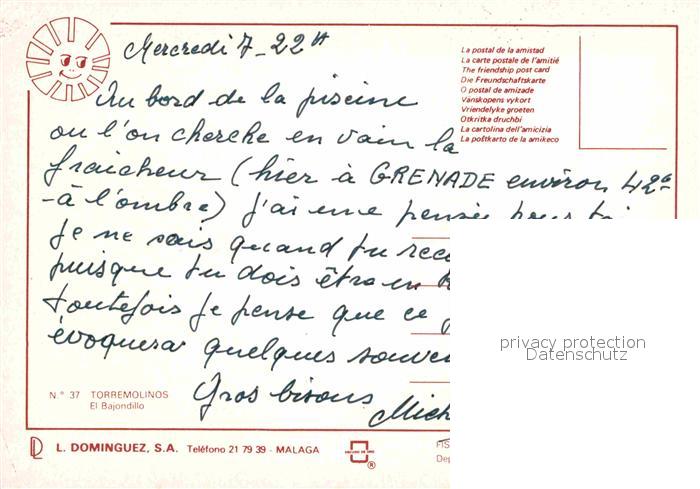 Mercredi 7 - 22H
Au bord de la piscine
ou l'on cherche en vain la
fraicheur (hier à GRENADE environ 42°
- à l'ombre) j'ai une pensée pour toi
Je ne sais quand tu
puisque tu dois être en
toutefois je pense que ce
évoquera quelques
Gros bisous
La postal de la amistad
La carte postale de l'amitié
The friendship post card
Die Freundschaftskarte
O postal de amizade
Vänskopens vykort
Vriendelyke groeten
Otkritka druchbi
La cartolina dell'amicizia
La poŝtkarto de la amikeco
privacy protection
Datenschutz
N.° 37 TORREMOLINOS
El Bajondillo
L. DOMINGUEZ, S.A. Teléfono 21 79 39 - MALAGA